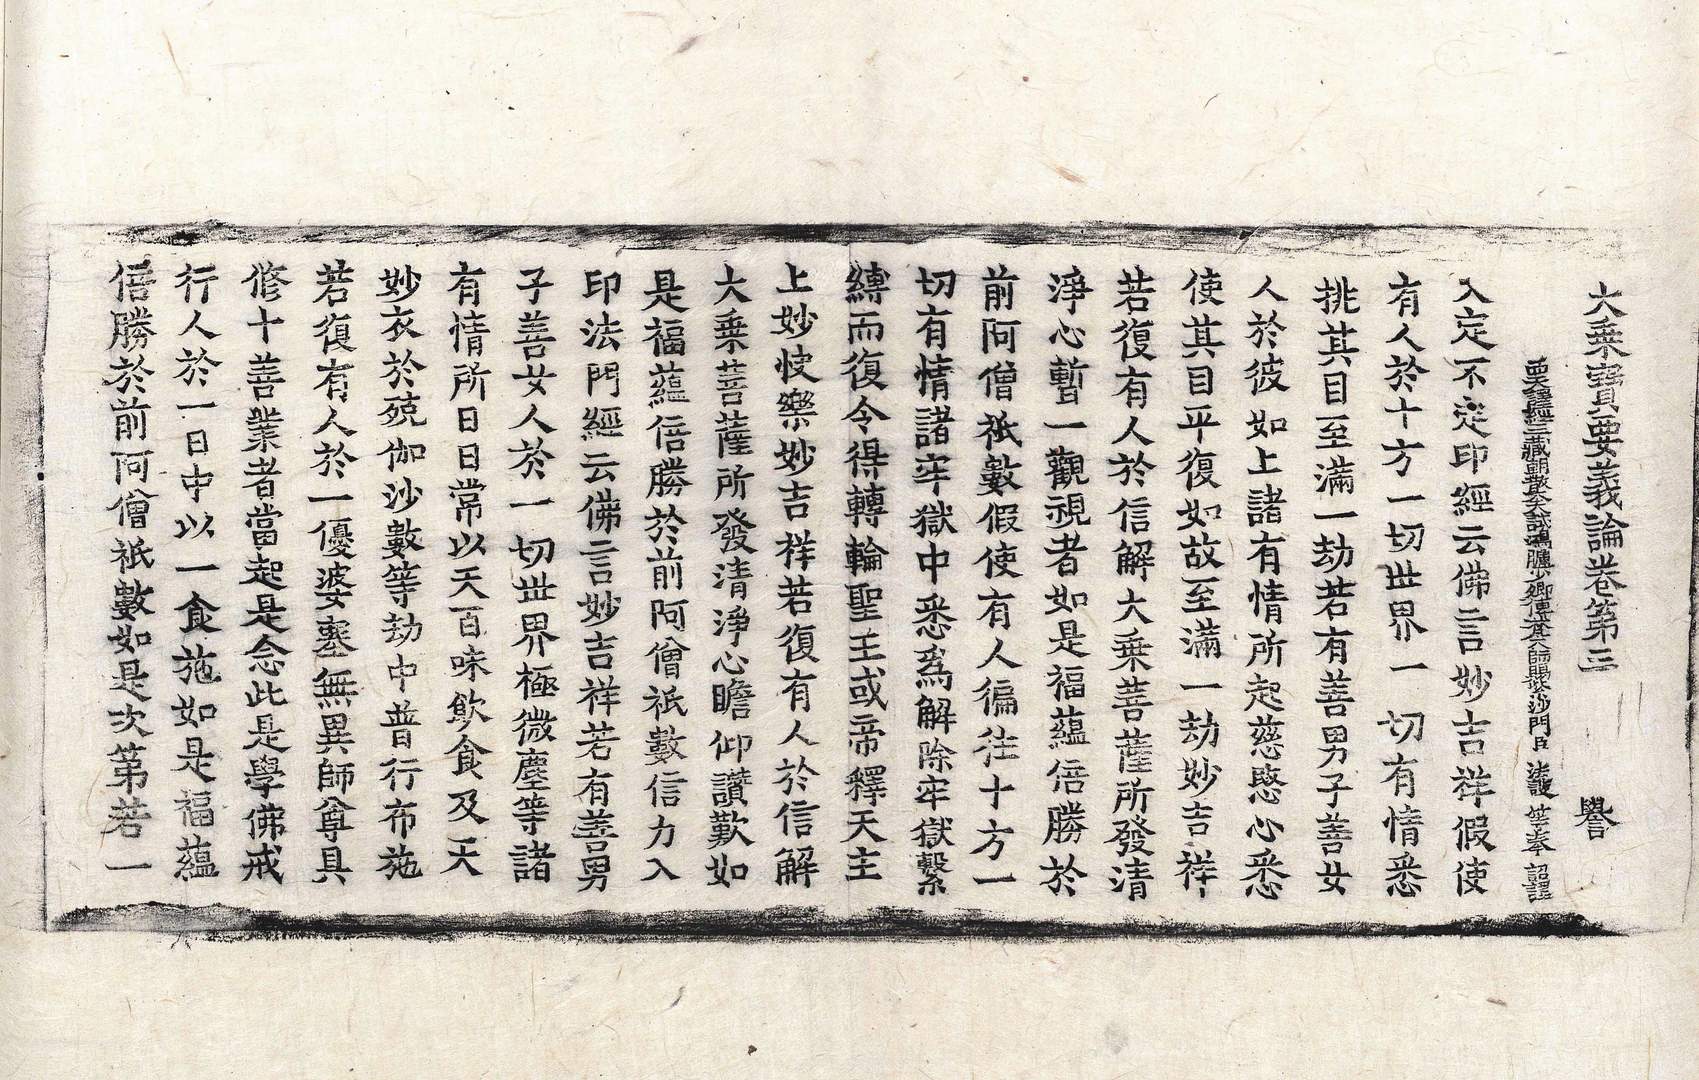 大乘寶要義論卷第三 譽
西天譯經三藏朝散大夫試鴻臚少卿傳梵大師賜紫沙門臣 法護 等奉 詔譯
入定不定印經云佛言妙吉祥假使
有人於十方一切世界一切有情悉
挑其目至滿一劫若有善男子善女
人於彼如上諸有情所起慈愍心悉
使其目平復如故至滿一劫妙吉祥
若復有人於信解大乘菩薩所發清
淨心暫一觀視者如是福蘊倍勝於
前阿僧祇數假使有人徧往十方一
切有情諸牢獄中悉爲解除牢獄繫
縛而復令得轉輪聖王或帝釋天主
上妙快樂妙吉祥若復有人於信解
大乘菩薩所發清淨心瞻仰讚歎如
是福蘊倍勝於前阿僧祇數信力入
印法門經云佛言妙吉祥若有善男
子善女人於一切世界極微塵等諸
有情所日日常以天百味飲食及天
妙衣於殑伽沙數等劫中普行布施
若復有人於一優婆塞無異師尊具
修十善業者當起是念此是學佛戒
行人於一日中以一食施如是福蘊
倍勝於前阿僧祇數如是次第若一